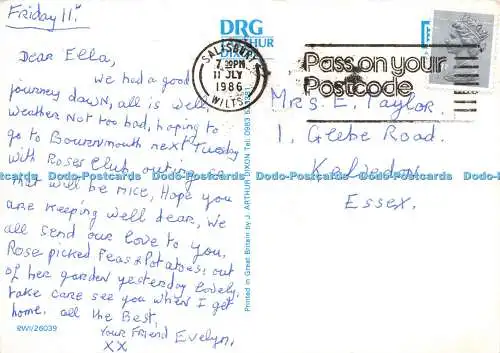 Friday 11th
Dear Ella,
we had a good
journey down, all is well
weather Not too bad, hoping to
go to Bournmouth next Tuesday
with Roses Club outing so
that will be nice, Hope you
are keeping well dear, we
all send our love to you,
Rose picked Peas & Potatoes out
of her garden yesterday lovely,
take care see you when I get
home. all the Best,
Your Friend Evelyn,
XX
RW/26039
DRG
ARTHUR
DIXON
Printed in Great Britain by J. ARTHUR DIXON Tel: 0983
SALISBURY
7.30PM
11 JLY
1986
WILTS
Pass on your
Postcode
Mrs E. Taylor.
1, Glebe Road.
Kelvedon
Essex.
Dodo-Postcards Dodo-Postcards Dodo-Postcards Dodo-Postcards Dodo-Postcards Dodo-Postcards